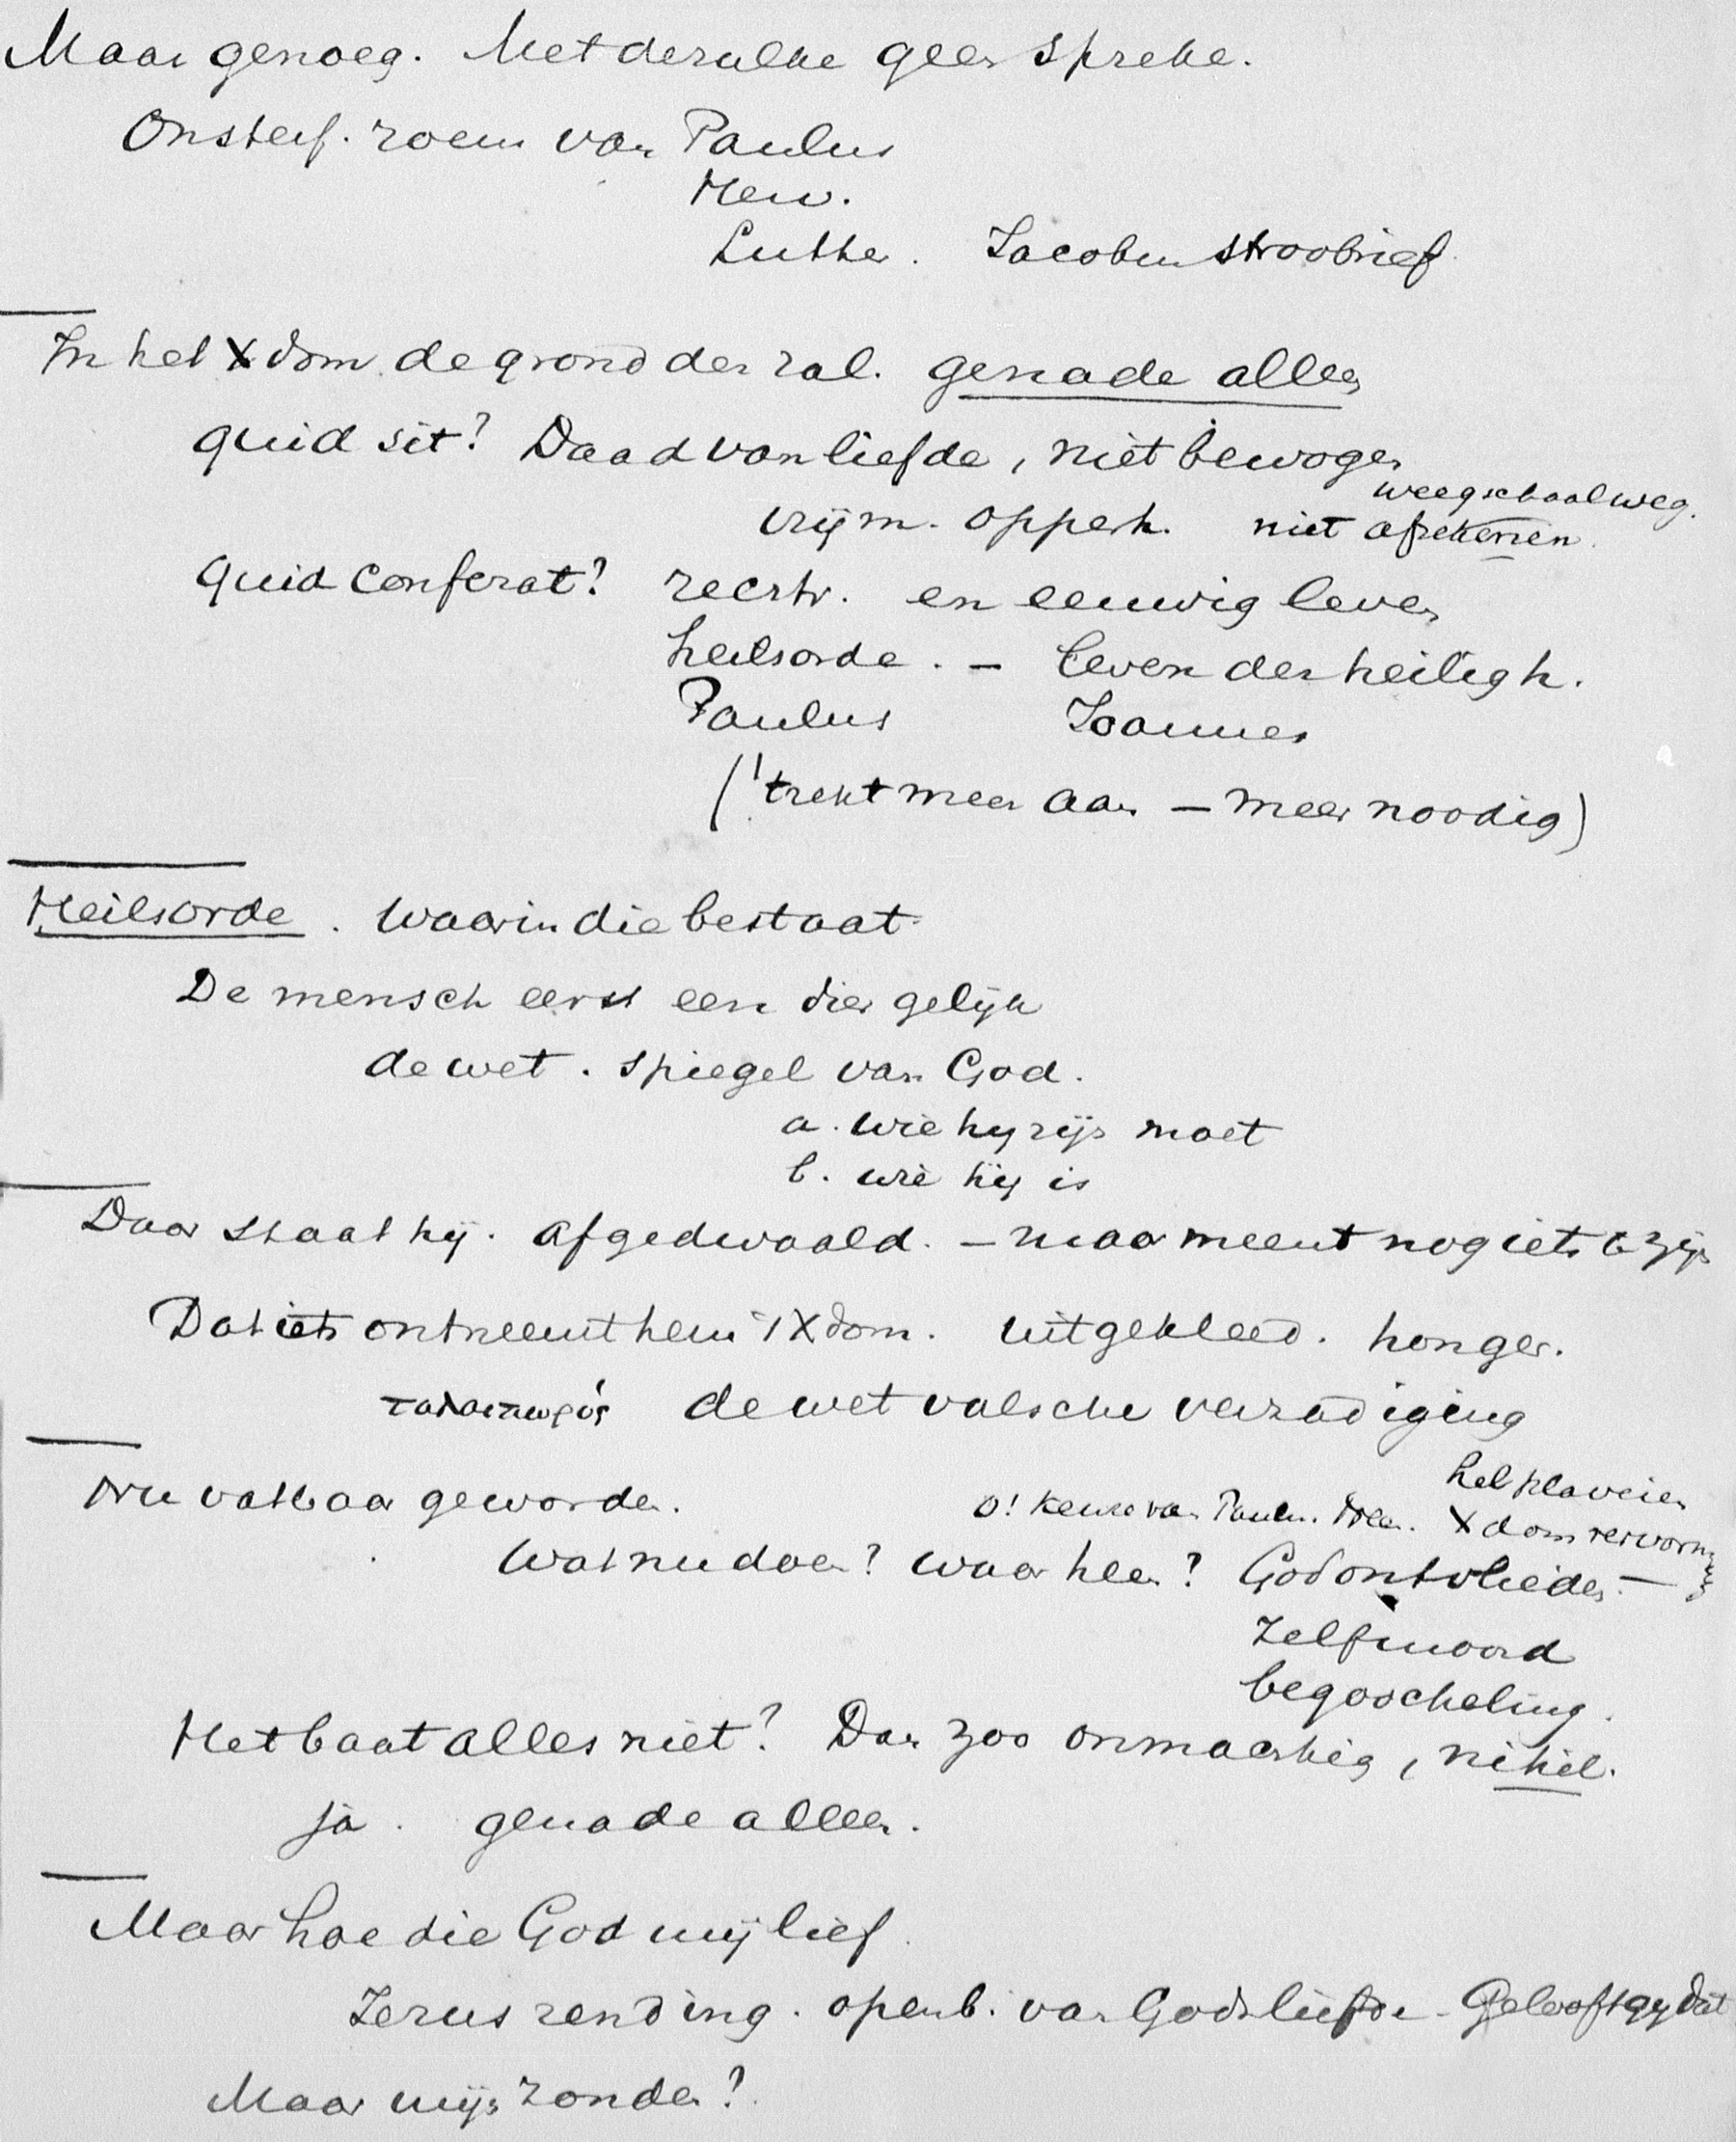 Maar genoeg. Met dezulke geen spreke.
Onsterf. roem van Paulus
Herv.
Luther. Jacobus stroobrief
In het Xdom de grond der zal. genade alleen
quid sit? Daad van liefde, niet bewogen
weegschaal weg.
vrijm. opperh. niet afrekenen.
quid conferat? rechtv. en eeuwig leven
heilsorde. - leven der heiligh.
Paulus Joannes
('trekt meer aan - meer noodig)
Heilsorde. Waarin die bestaat
De mensch eerst een dier gelijk
de wet. spiegel van God.
a. wie hij zijn moet
b. wie hij is
Daar staat hij. afgedwaald. - maar meent nog iets te zijn
Dat iets ontneemt hem 't Xdom. uitgekleed. honger.
ταλαιπωρός de wet valsche verzadiging
Nu vatbaar geworden.
hel plaveien
o! keuze van Paulus. Xdom vervorm
Wat nu doen? waar heen? God ontvlieden -
Zelfmoord
begoocheling.
Het baat alles niet? Dan zoo onmachtig, nihil.
ja. genade alleen.
Maar hoe die God mij lief
Jezus zending. openb. van Gods liefde - Gelooft gy dat
Maar mijn zonden?